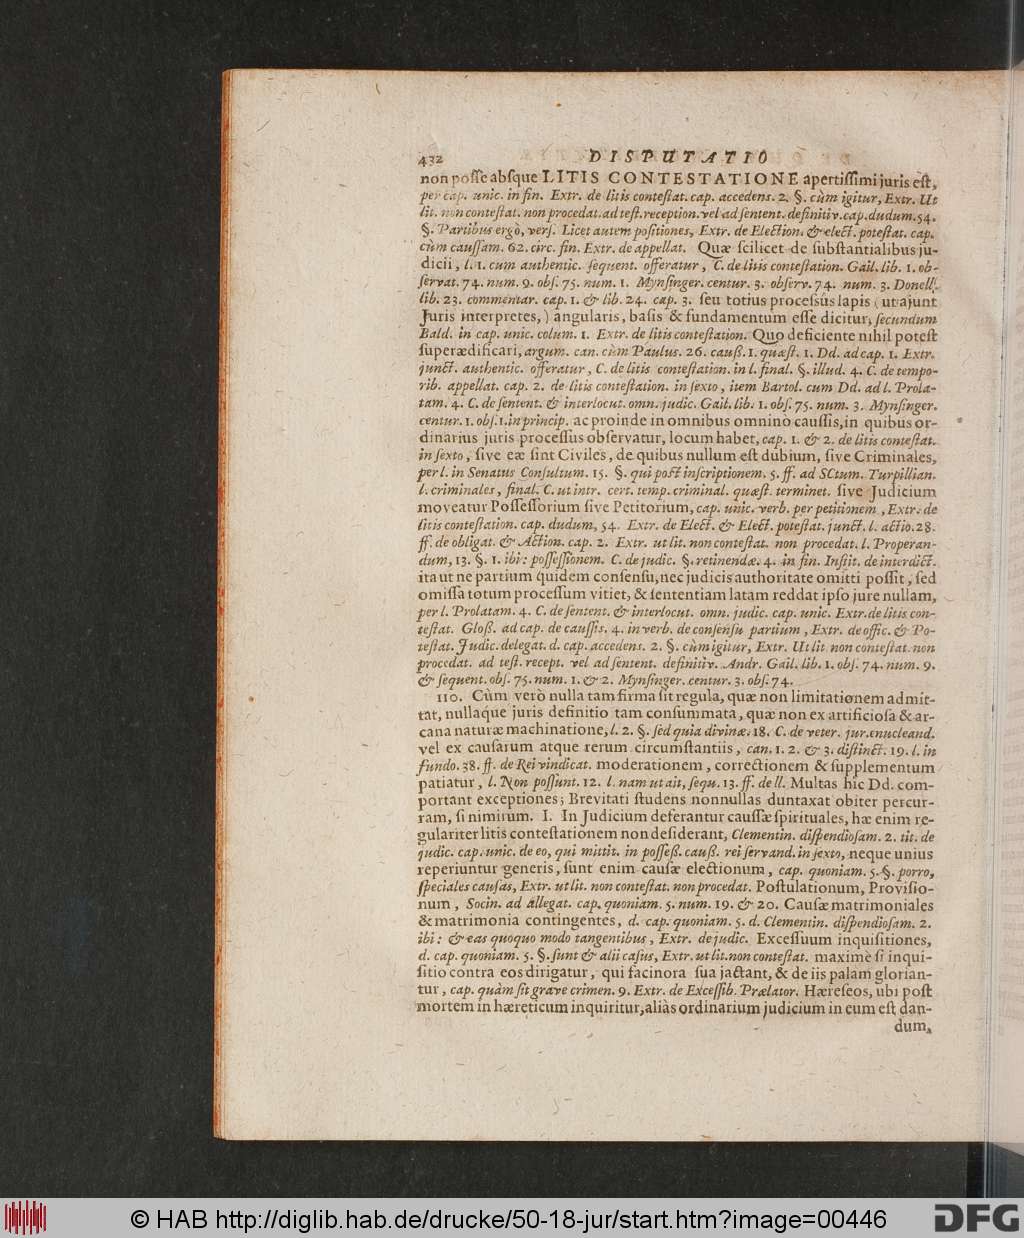 432 DISPUTATIO
non posse absque LITIS CONTESTATIONE apertissimi juris est,
per cap. unic. in fin. Extr. de litis contestat. cap. accedens. 2. §. cùm igitur, Extr. Ut
lit. non contestat. non procedat. ad test. reception. vel ad sentent. definitiv. cap. dudum. 54.
§. Partibus ergò, vers. Licet autem positiones, Extr. de Election. & elect. potestat. cap.
cùm caussam. 62. circ. fin. Extr. de appellat. Quæ scilicet de substantialibus ju-
dicii, l. 1. cum authentic. sequent. offeratur, C. de litis contestation. Gail. lib. 1. ob-
servat. 74. num. 9. obs. 75. num. 1. Mynsinger. centur. 3. observ. 74. num. 3. Donell.
lib. 23. commentar. cap. 1. & lib. 24. cap. 3. seu totius processûs lapis (ut ajunt
Juris interpretes,) angularis, basis & fundamentum esse dicitur, secundum
Bald. in cap. unic. colum. 1. Extr. de litis contestation. Quo deficiente nihil potest
superædificari, argum. can. cùm Paulus. 26. cauß. 1. quæst. 1. Dd. ad cap. 1. Extr.
junct. authentic. offeratur, C. de litis contestation. in l. final. §. illud. 4. C. de tempo-
rib. appellat. cap. 2. de litis contestation. in sexto, item Bartol. cum Dd. ad l. Prola-
tam. 4. C. de sentent. & interlocut. omn. judic. Gail. lib. 1. obs. 75. num. 3. Mynsinger.
centur. 1. obs. 1. in princip. ac proinde in omnibus omninò caussis, in quibus or-
dinarius juris processus observatur, locum habet, cap. 1. & 2. de litis contestat.
in sexto, sive eæ sint Civiles, de quibus nullum est dubium, sive Criminales,
per l. in Senatus Consultum. 15. §. qui post inscriptionem. 5. ff. ad SCtum. Turpillian.
l. criminales, final. C. ut intr. cert. temp. criminal. quæst. terminet. sive Judicium
moveatur Possessorium sive Petitorium, cap. unic. verb. per petitionem, Extr. de
litis contestation. cap. dudum, 54. Extr. de Elect. & Elect. potestat. junct. l. actio. 28.
ff. de obligat. & Action. cap. 2. Extr. ut lit. non contestat. non procedat. l. Properan-
dum, 13. §. 1. ibi: possessionem. C. de judic. §. retinendæ. 4. in fin. Instit. de interdict.
ita ut ne partium quidem consensu, nec judicis authoritate omitti possit, sed
omissa totum processum vitiet, & sententiam latam reddat ipso jure nullam,
per l. Prolatam. 4. C. de sentent. & interlocut. omn. judic. cap. unic. Extr. de litis con-
testat. Gloß. ad cap. de caussis. 4. in verb. de consensu partium, Extr. de offic. & Po-
testat. Judic. delegat. d. cap. accedens. 2. §. cùm igitur, Extr. Ut lit. non contestat. non
procedat. ad test. recept. vel ad sentent. definitiv. Andr. Gail. lib. 1. obs. 74. num. 9.
& sequent. obs. 75. num. 1. & 2. Mynsinger. centur. 3. obs. 74.
110. Cùm verò nulla tam firma sit regula, quæ non limitationem admit-
tat, nullaque juris definitio tam consummata, quæ non ex artificiosa & ar-
cana naturæ machinatione, l. 2. §. sed quia divinæ. 18. C. de veter. jur. enucleand.
vel ex causarum atque rerum circumstantiis, can. 1. 2. & 3. distinct. 19. l. in
fundo. 38. ff. de Rei vindicat. moderationem, correctionem & supplementum
patiatur, l. Non possunt. 12. l. nam ut ait, sequ. 13. ff. de ll. Multas hîc Dd. com-
portant exceptiones; Brevitati studens nonnullas duntaxat obiter percur-
ram, si nimirum. I. In Judicium deferantur caussæ spirituales, hæ enim re-
gulariter litis contestationem non desiderant, Clementin. dispendiosam. 2. tit. de
judic. cap. unic. de eo, qui mittit. in posseß. cauß. rei servand. in sexto, neque unius
reperiuntur generis, sunt enim causæ electionum, cap. quoniam. 5. §. porro,
speciales causas, Extr. ut lit. non contestat. non procedat. Postulationum, Provisio-
num, Socin. ad allegat. cap. quoniam. 5. num. 19. & 20. Causæ matrimoniales
& matrimonia contingentes, d. cap. quoniam. 5. d. Clementin. dispendiosam. 2.
ibi: & eas quoquo modo tangentibus, Extr. de judic. Excessuum inquisitiones,
d. cap. quoniam. 5. §. sunt & alii casus, Extr. ut lit. non contestat. maximè si inqui-
sitio contra eos dirigatur, qui facinora sua jactant, & de iis palàm glorian-
tur, cap. quàm sit grave crimen. 9. Extr. de Excessib. Prælator. Hæreseos, ubi post
mortem in hæreticum inquiritur, aliàs ordinarium judicium in eum est dan-
dum,
© HAB http://diglib.hab.de/drucke/50-18-jur/start.htm?image=00446 DFG